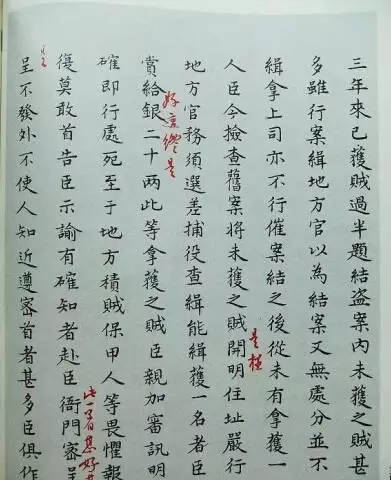 三年來已獲賊過半題結盜案內未獲之賊甚
多雖行案緝地方官以為結案又無處分並不
緝拿上司亦不行催案結之後從未有拿獲一
人臣今撿查舊案將未獲之賊開明住址嚴行
是極
地方官務須選差捕役查緝能緝獲一名者臣
賞給銀二十两此等拿獲之賊臣親加審訊明
好這纔是
確即行處死至于地方積賊保甲人等畏懼報
復莫敢首告臣示諭有確知者赴臣衙門密呈
呈不發外不使人知近遵密首者甚多臣俱作